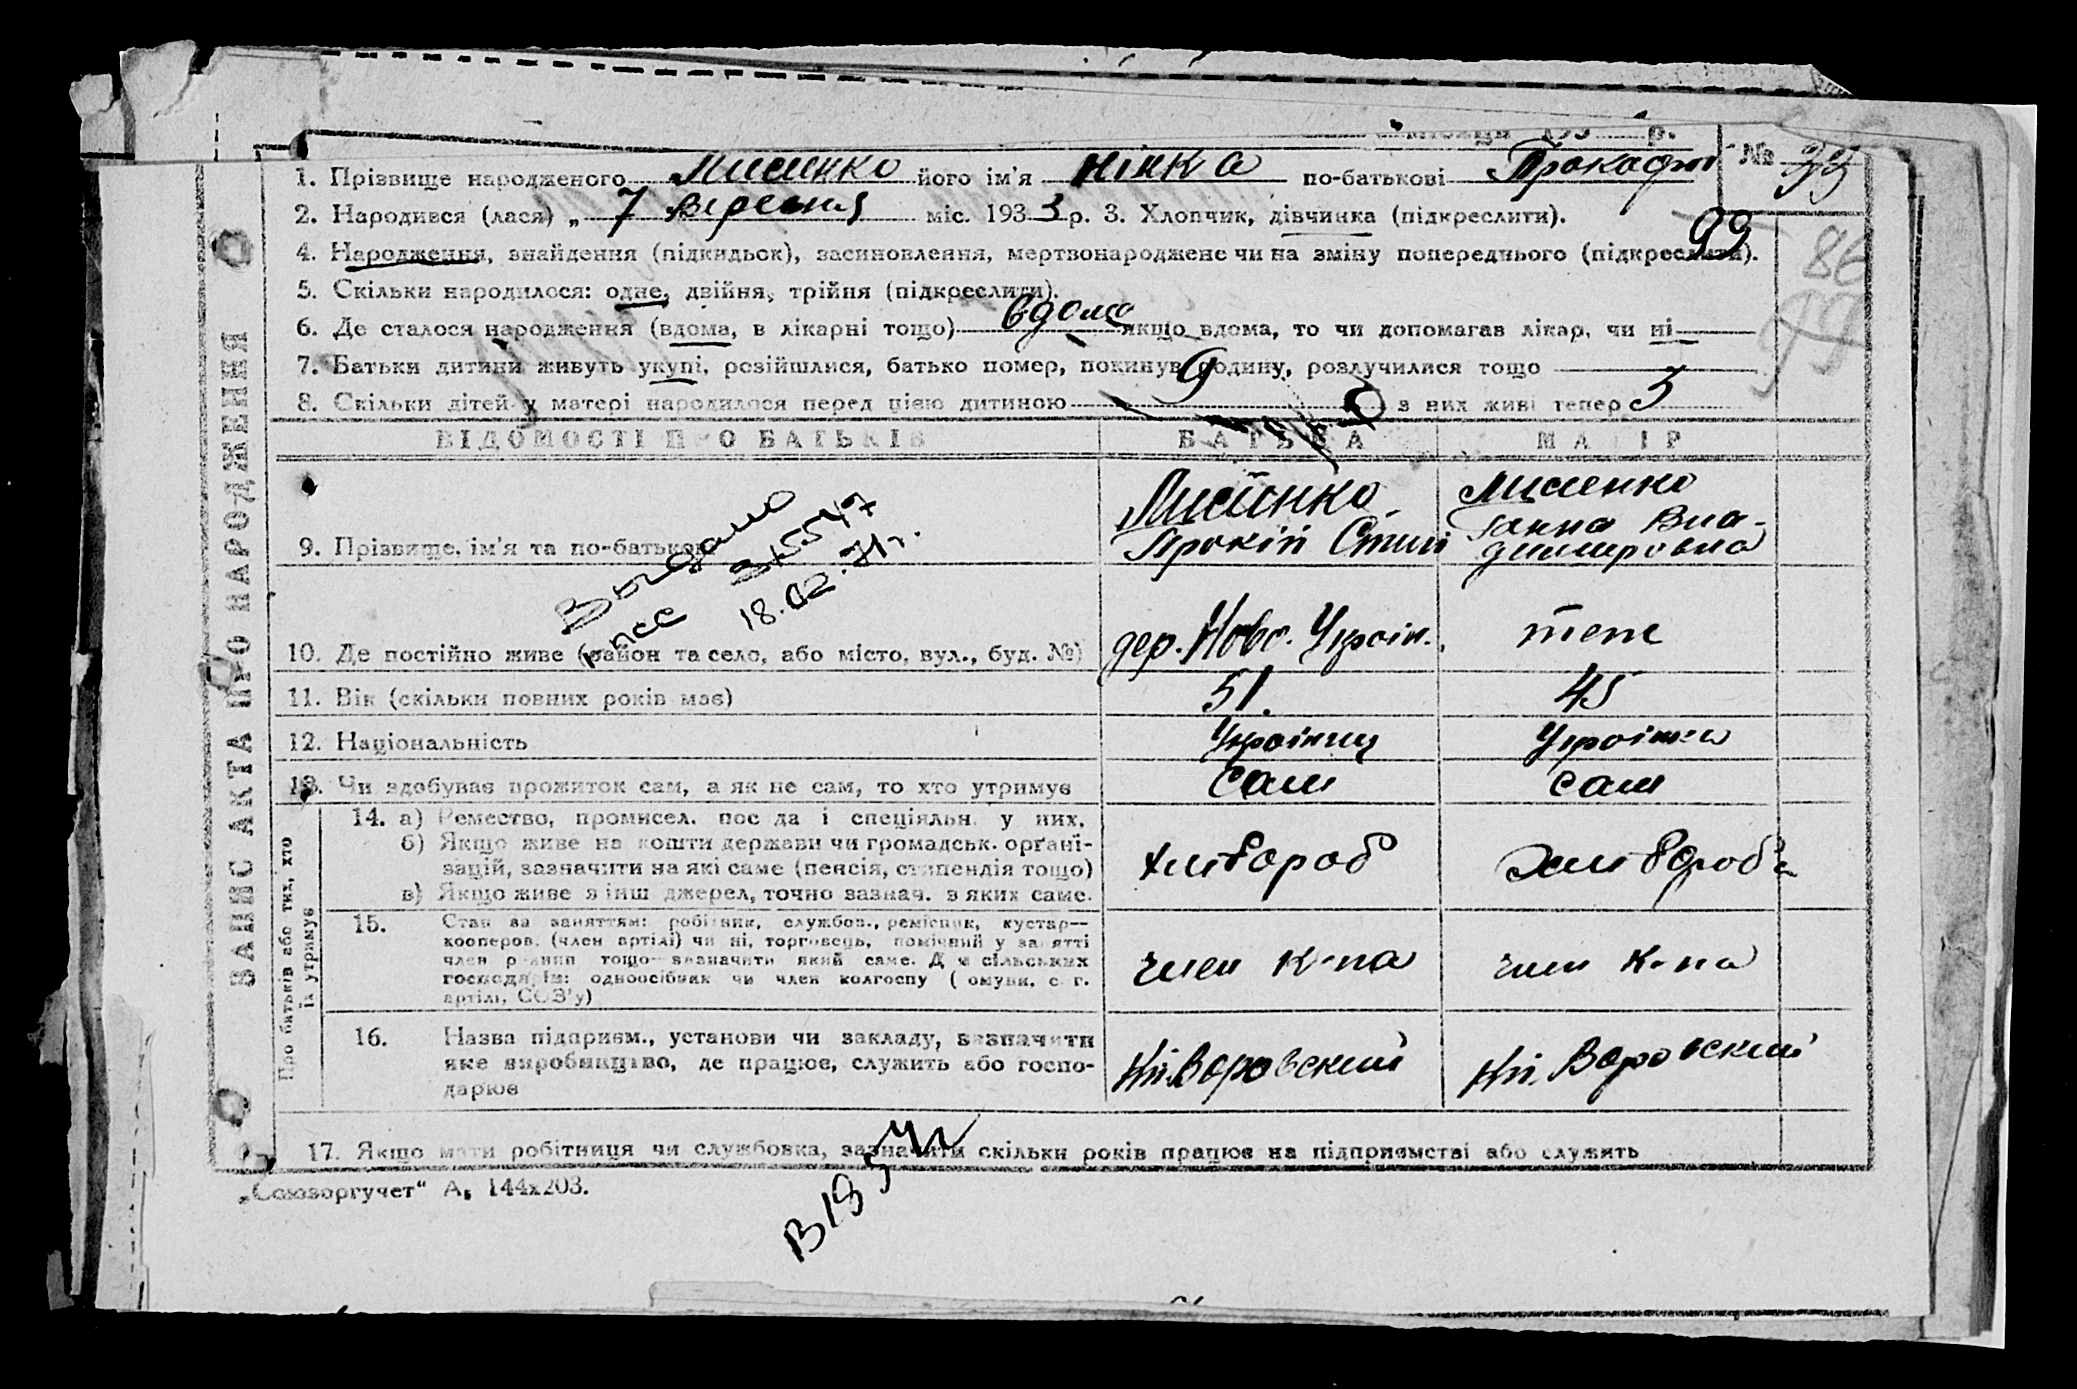 р.
№ 99
1. Прізвище народженого Лисенко його ім'я Нінка по-батькові
2. Народився (лася) „ 7 Вересня міс. 1933 р. 3. Хлопчик, дівчинка (підкреслити).
99
86
4. Народження, знайдення (підкидьок), засиновлення, мертвонароджене чи на зміну попереднього (підкреслити).
5. Скільки народилося: одне, двійня, трійня (підкреслити).
99
6. Де сталося народження (вдома, в лікарні тощо) вдома якщо вдома, то чи допомагав лікар, чи ні
7. Батьки дитини живуть укупі, розійшлися, батько помер, покинув родину, розлучилися тощо
8. Скільки дітей у матері народилося перед цією дитиною 9 з них живі тепер 3
ВІДОМОСТІ ПРО БАТЬКІВ БАТЬКА МАТІР
ЗАПИС АКТА ПРО НАРОДЖЕННЯ
9. Прізвище, ім'я та по-батькові
Лисенко
Прокіп
Лисенко
Ганна Вла-
димировна
Выдано
18.02.71г.
10. Де постійно живе (район та село, або місто, вул., буд. №) дер. Ново. Україн. теж
11. Вік (скільки повних років має) 51. 45
12. Національність Українец Українка
13. Чи здобуває прожиток сам, а як не сам, то хто утримує сам сам
Про батьків або тих, хто
їх утримує
14. а) Ремество, промисел, посада і спеціяльн. у них.
б) Якщо живе на кошти держави чи громадськ. орґані-
зацій, зазначити на які саме (пенсія, стипендія тощо)
в) Якщо живе з інш джерел, точно зазнач. з яких саме.
хлібороб хлібороб
15. Стан за заняттям: робітник, службов., ремісник, кустар—
кооперов. (член артілі) чи ні, торговець, помічний у занятті
член родини тощо—визначити який саме. Для сільських
господарів: одноосібник чи член колгоспу (комуни, с. г.
артілі, СОЗ'у)
член к-па член к-па
16. Назва підприєм., установи чи закладу, зазначити
яке виробництво, де працює, служить або госпо-
дарює
Кп. Воровський Кп. Воровський
17. Якщо мати робітниця чи службовка, зазначити скільки років працює на підприємстві або служить
„Союзоргучет“ А5 144х203.